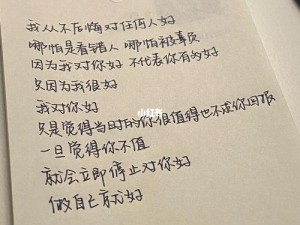 我从不后悔对任何人好
哪怕是看错人 哪怕被辜负
因为我对你好 不代表你有的好
只因为我很好
我对你好
只是觉得当时的你很值得也不求你回报
一旦觉得你不值
就会立即停止对你好
做自己就好
小红书